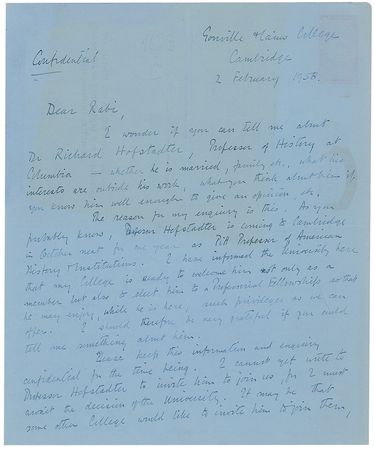 Gonville & Caius College
Cambridge
Confidential
2 February 1958.
Dear Rabi,
I wonder if you can tell me about
Dr Richard Hofstadter, Professor of History at
Columbia — whether he is married, family etc., what his
interests are outside his work, what you think about him if
you know him well enough to give an opinion etc.
The reason for my enquiry is this. As you
probably know, Hofstadter is coming to Cambridge
in October next for one year as Pitt Professor of American
History & Institutions. I have informed the University here
that my College is ready to welcome him not only as a
member but also to elect him to a Professorial Fellowship so that
he may enjoy, while he is here, such privileges as we can
offer. I should therefore be very grateful if you could
tell me something about him.
Please keep this information and enquiry
confidential for the time being. I cannot yet write to
Professor Hofstadter to invite him to join us, for I must
await the decision of the University. It may be that
some other College would like to invite him to join them,